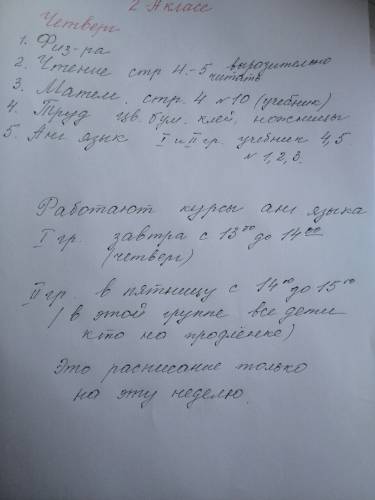 2 А класс
Четверг
1. Физ-ра
2. Чтение стр 4-5 выразительно читать
3. Матем. стр. 4 №10 (учебник)
4. Труд цв. бум. клей, ножницы
5. Анг язык I и II гр. учебник 4,5
№ 1,2,3.
Работают курсы анг языка
I гр. завтра с 13⁰⁰ до 14⁰⁰
(четверг)
II гр. в пятницу с 14⁰⁰ до 15⁰⁰
(в этой группе все дети
кто на продлёнке)
Это расписание только
на эту неделю.